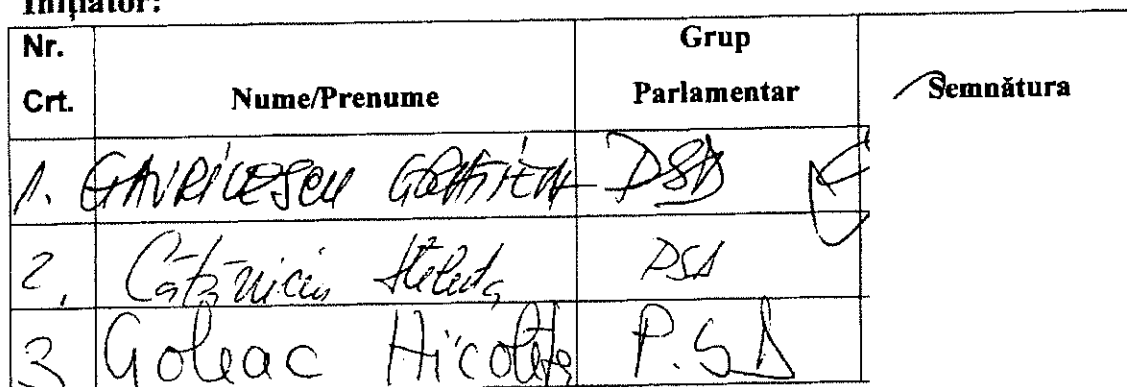 Inițiator:
Nr. Crt. Nume/Prenume Grup Parlamentar Semnătura
1. GAVRILESCU GRAȚIELA PSD
2. Cătăniciu Steluța PSD
3 Goleac Nicoleta P.SD